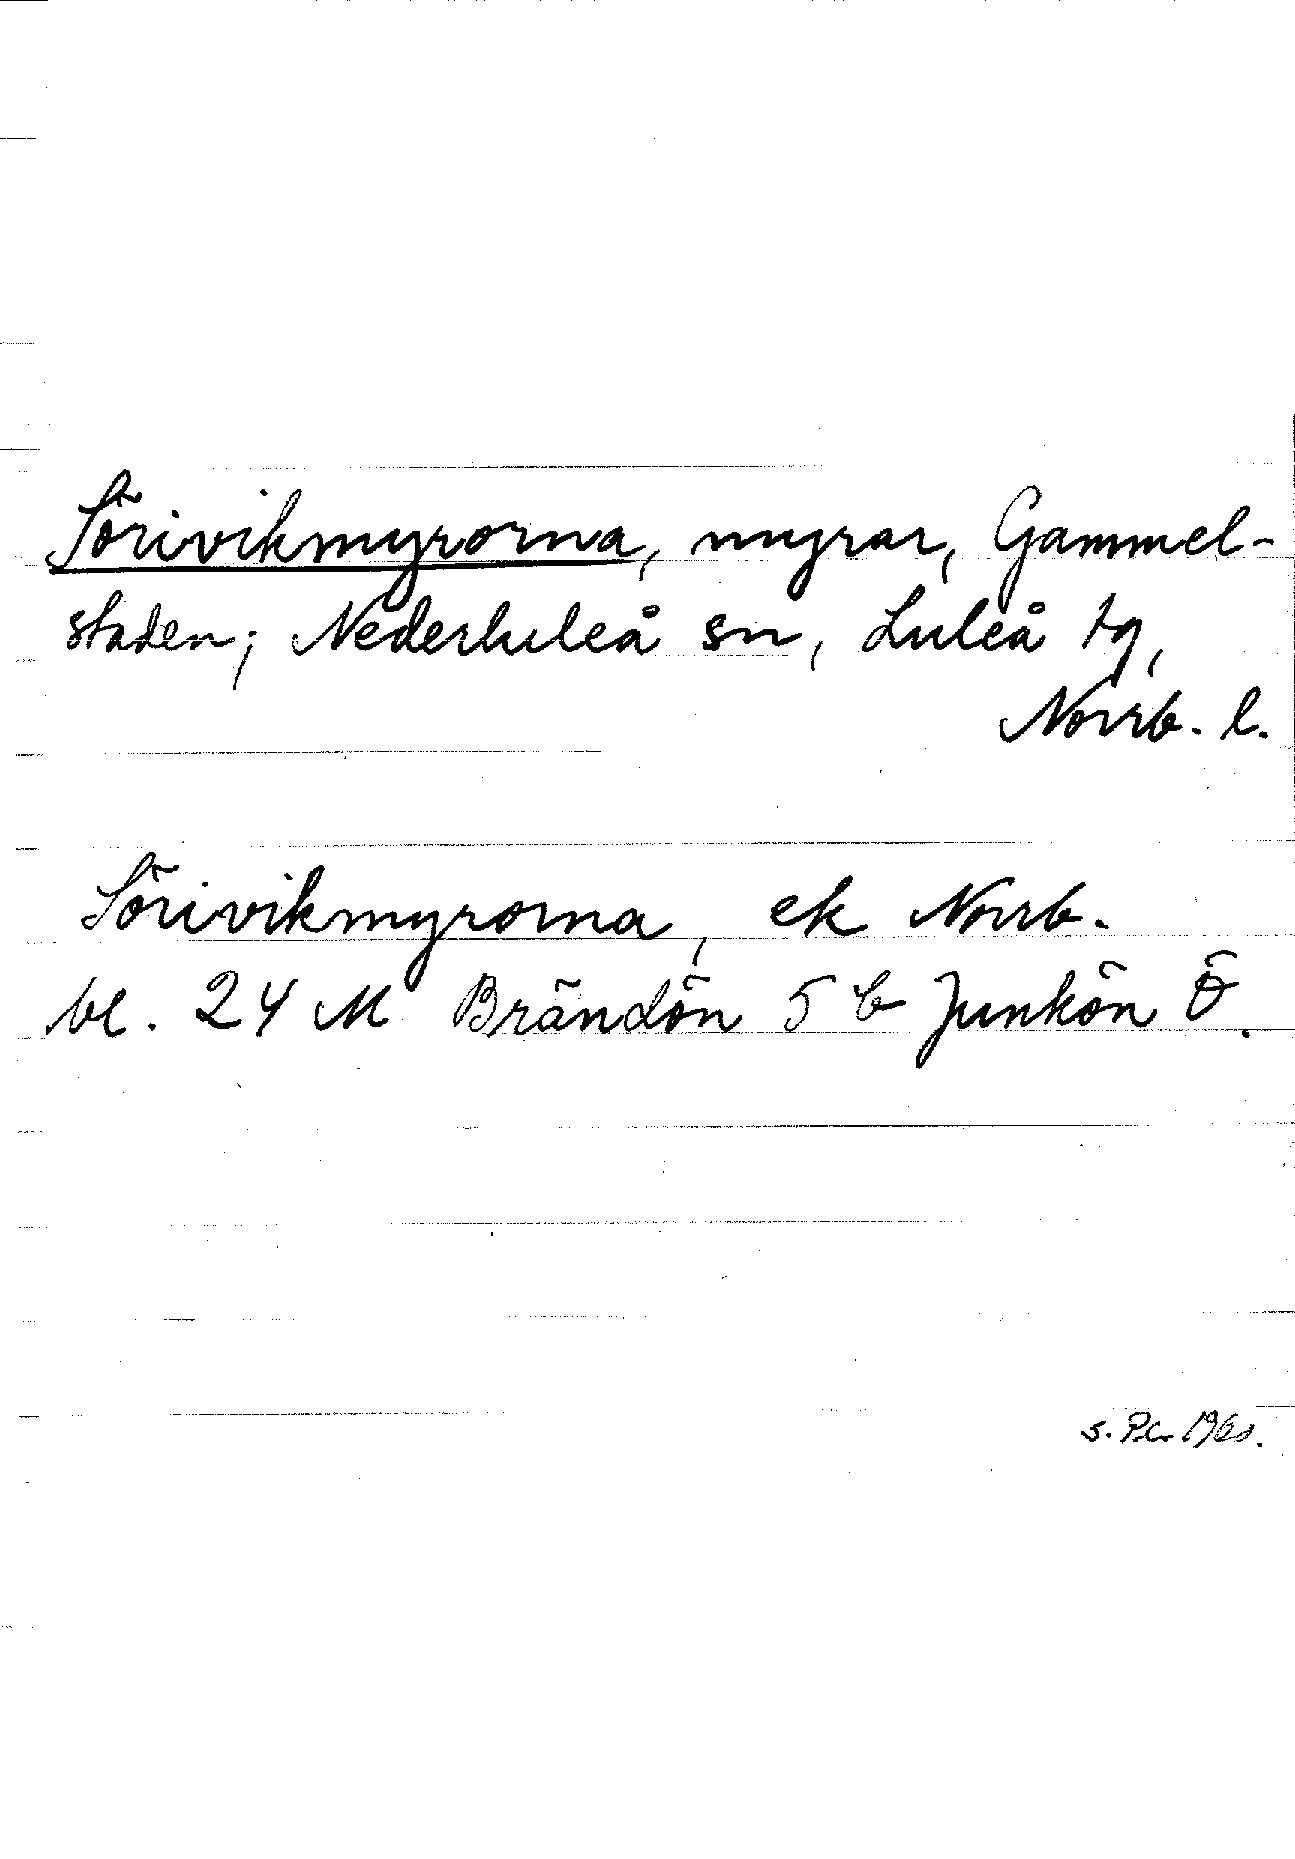 Sörivikmyrorna, myrar, Gammel-
staden; Nederluleå sn, Luleå tg,
Norrb. l.
Sörivikmyrorna, ek Norrb.
bl. 24 M Brändön 5 b Junkön Ö.
s.